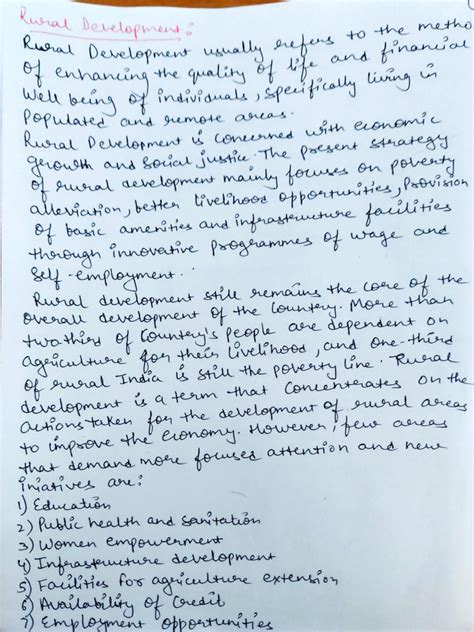 Rural Development:
Rural Development usually refers to the metho
of enhancing the quality of life and financial
well being of individuals, specifically living in
populated and remote areas.
Rural Development is concerned with economic
growth and social justice. The present strategy
of rural development mainly focuses on poverty
alleviation, better livelihood opportunities, Provision
of basic amenities and infrastructure facilities
through innovative programmes of wage and
self-employment.
Rural development still remains the core of the
overall development of the Country. More than
two thirds of Country's people are dependent on
agriculture for their livelihood, and one-third
of rural India is still the poverty line. Rural
development is a term that Concentrates on the
actions taken for the development of rural areas
to improve the economy. However, few areas
that demand more focused attention and new
iniatives are:
1) Education
2) Public health and Sanitation
3) Women empowerment
4) Infrastructure development
5) Facilities for agriculture extension
6) Availability of Credit
7) Employment opportunities